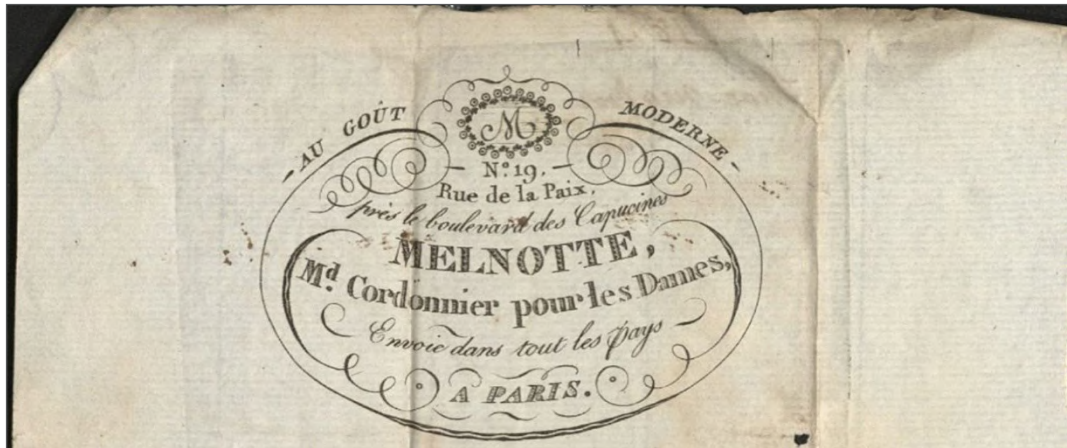 AU GOÛT MODERNE
M
N.º 19.
Rue de la Paix,
près le boulevard des Capucines
MELNOTTE,
M.d Cordonnier pour les Dames,
Envoie dans tout les pays
A PARIS.